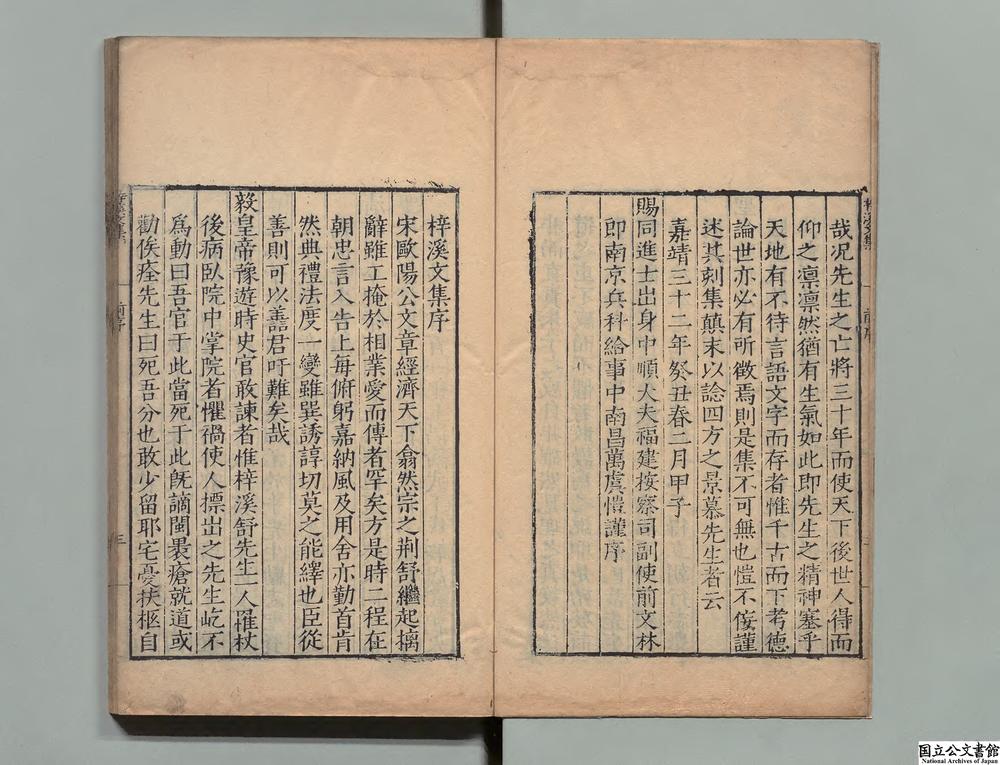 哉况先生之亡將三十年而使天下後世人得而
仰之凛凛然猶有生氣如此即先生之精神塞乎
天地有不待言語文字而存者惟千古而下考德
論世亦必有所徵焉則是集不可無也愷不佞謹
述其刻集顛末以諗四方之景慕先生者云
嘉靖三十二年癸丑春二月甲子
賜同進士出身中順大夫福建按察司副使前文林
郎南京兵科給事中南昌萬虞愷謹序
梓溪文集序
宋歐陽公文章經濟天下翕然宗之荆舒繼起摛
辭雖工掩於相業愛而傳者罕矣方是時二程在
朝忠言入告上每俯躬嘉納風及用舍亦勤首肯
然典禮法度一變雖巽誘諄切莫之能繹也臣從
善則可以善君吁難矣哉
毅皇帝豫遊時史官敢諫者惟梓溪舒先生一人罹杖
後病臥院中掌院者懼禍使人標出之先生屹不
爲動曰吾官于此當死于此旣謫閩褁瘡就道或
勸俟痊先生曰死吾分也敢少留耶宅憂扶柩自
三
国立公文書館
National Archives of Japan